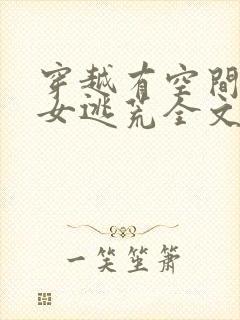 穿越有空間
女逃荒全文
一笑笙箫